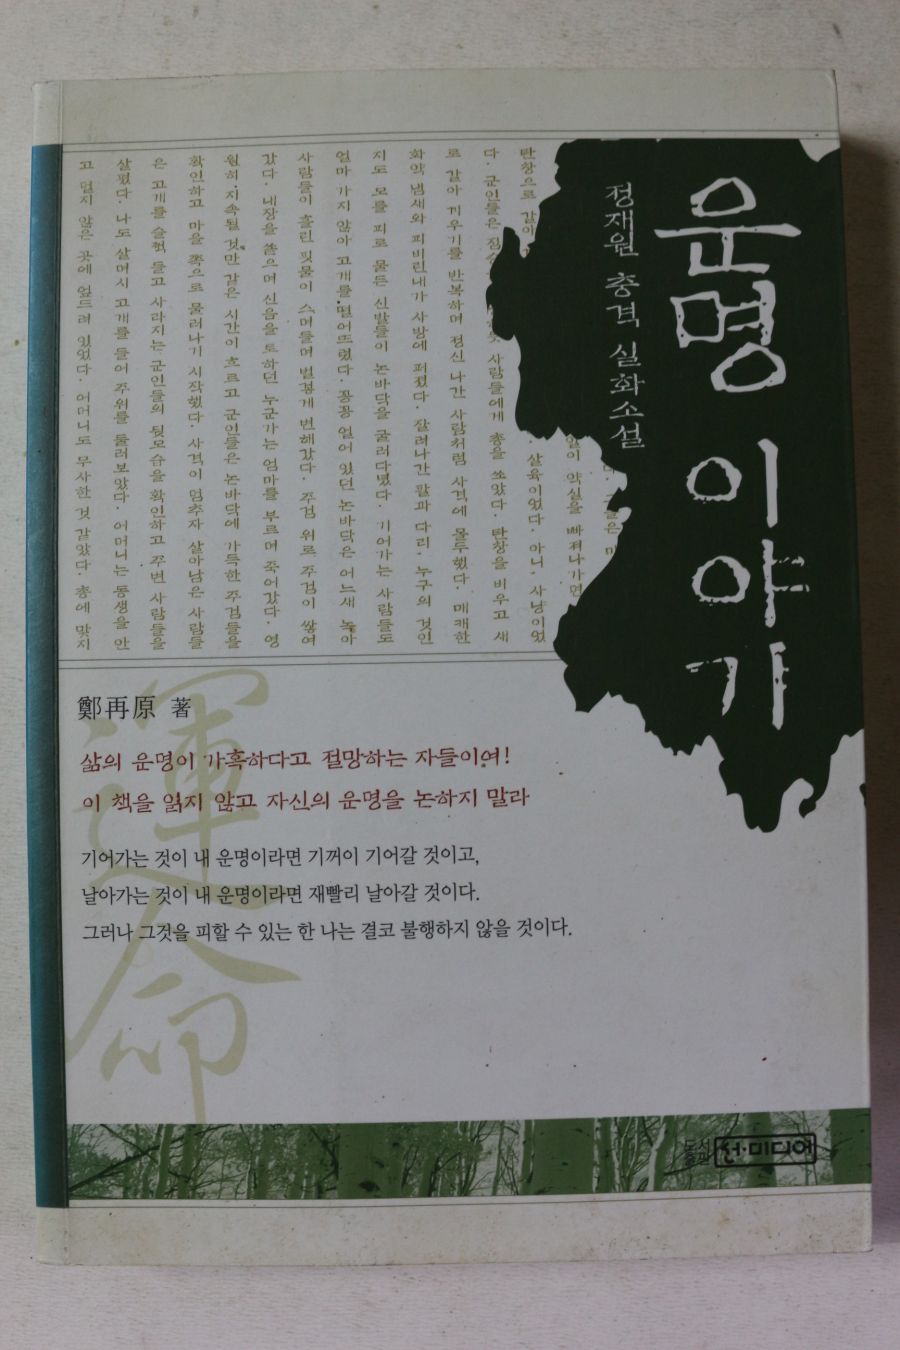 운명 이야기
정재원 충격 실화소설
탄창으로 갈아
다. 군인들은 사람들에게 총을 쏘았다. 탄창을 비우고 새
로 갈아 끼우기를 반복하며 정신 나간 사람처럼 사격에 몰두했다. 매캐한
화약 냄새와 피비린내가 사방에 퍼졌다. 잘려나간 팔과 다리. 누구의 것인
지도 모를 피로 물든 신발들이 논바닥을 굴러다녔다. 기어가는 사람들도
얼마 가지 않아 고개를 떨어뜨렸다. 꽁꽁 얼어 있던 논바닥은 어느새 녹아
사람들이 흘린 핏물이 스며들며 벌겋게 변해갔다. 주검 위로 주검이 쌓여
갔다. 내장을 쏟으며 신음을 토하던 누군가는 엄마를 부르며 죽어갔다. 영
원히 지속될 것만 같은 시간이 흐르고 군인들은 논바닥에 가득한 주검들을
확인하고 마을 쪽으로 물러나기 시작했다. 사격이 멈추자 살아남은 사람들
은 고개를 슬쩍 들고 사라지는 군인들의 뒷모습을 확인하고 주변 사람들을
살폈다. 나도 살며시 고개를 들어 주위를 둘러보았다. 어머니는 동생을 안
고 멀지 않은 곳에 엎드려 있었다. 어머니도 무사한 것 같았다. 총에 맞지
살육이었다. 아니. 사냥이었
빠져나가면
鄭再原 著
運命
삶의 운명이 가혹하다고 절망하는 자들이여!
이 책을 읽지 않고 자신의 운명을 논하지 말라
기어가는 것이 내 운명이라면 기꺼이 기어갈 것이고,
날아가는 것이 내 운명이라면 재빨리 날아갈 것이다.
그러나 그것을 피할 수 있는 한 나는 결코 불행하지 않을 것이다.
도서출판 전·미디어